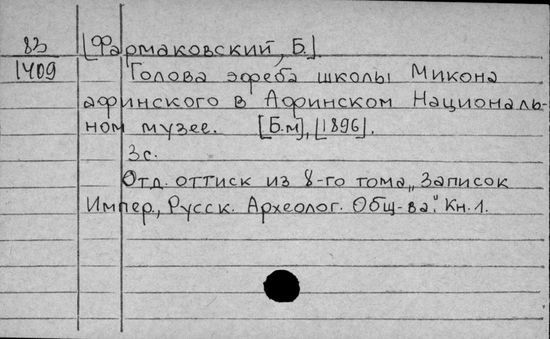 83 [Фармаковский, Б.].
1409 Голова эфеба школы Микона
афинского в Афинском Националь-
ном музее. [Б.м], [1896].
3с.
Отд. оттиск из 8-го тома „Записок
Импер., Русск. Археолог. Общ-ва". Кн.1.